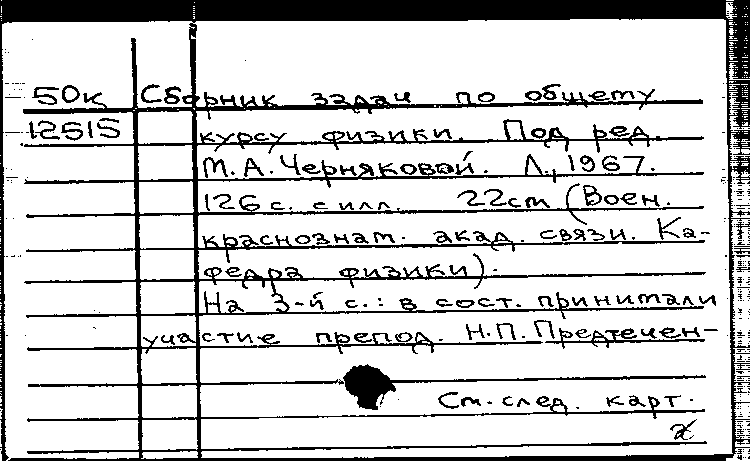 50к Сборник задач по общему
12515 курсу физики. Под ред.
М.А. Черняковой. Л., 1967.
126 с. с илл. 22 cm (Воен.
краснознам. акад. связи. Ка-
федра физики).
На 3-й с.: в сост. принимали
участие препод. Н.П. Предтечен-
См. след. карт.